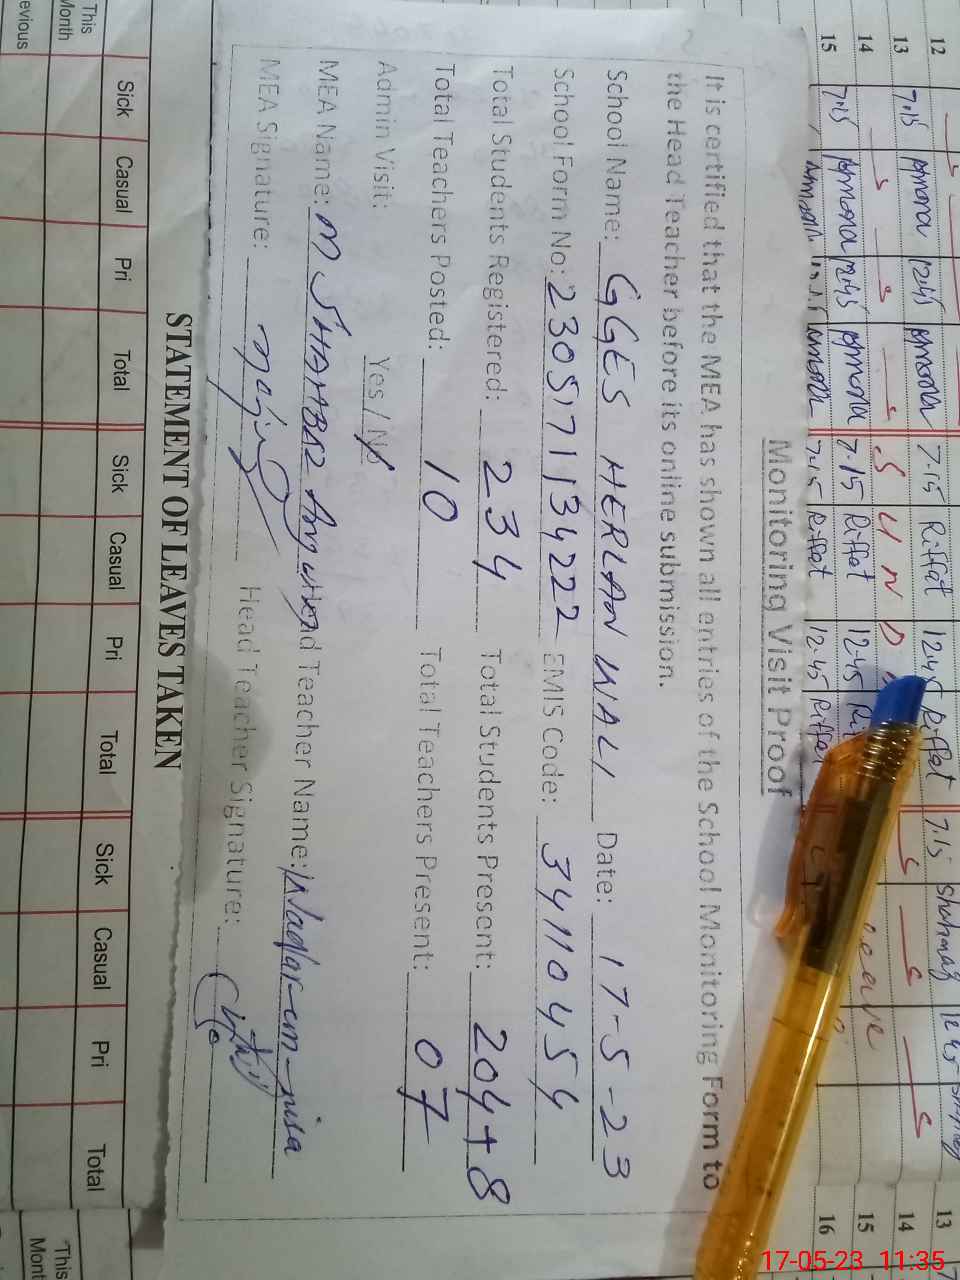 12 7:15 12:45 7.15 Riffat 12.45 Riffat 7.15 Shahnaz 13
13 S S S S U N D S S S 14
14 7:15 12:45 7.15 Riffat 12.45 Leave 15
15 7:15 7.15 Riffat 12.45 Riffat 16
Monitoring Visit Proof
It is certified that the MEA has shown all entries of the School Monitoring Form to
the Head Teacher before its online submission.
School Name: GGES HERLAN WALI Date: 17-5-23
School Form No: 230517113422 EMIS Code: 34110454
Total Students Registered: 234 Total Students Present: 204+8
Total Teachers Posted: 10 Total Teachers Present: 07
Admin Visit: Yes / No
MEA Name: M SHAHBAZ Head Teacher Name:
MEA Signature: Head Teacher Signature:
STATEMENT OF LEAVES TAKEN
Sick Casual Pri Total Sick Casual Pri Total Sick Casual Pri Total
This
Month
evious
This
Mont
17-05-23 11:35